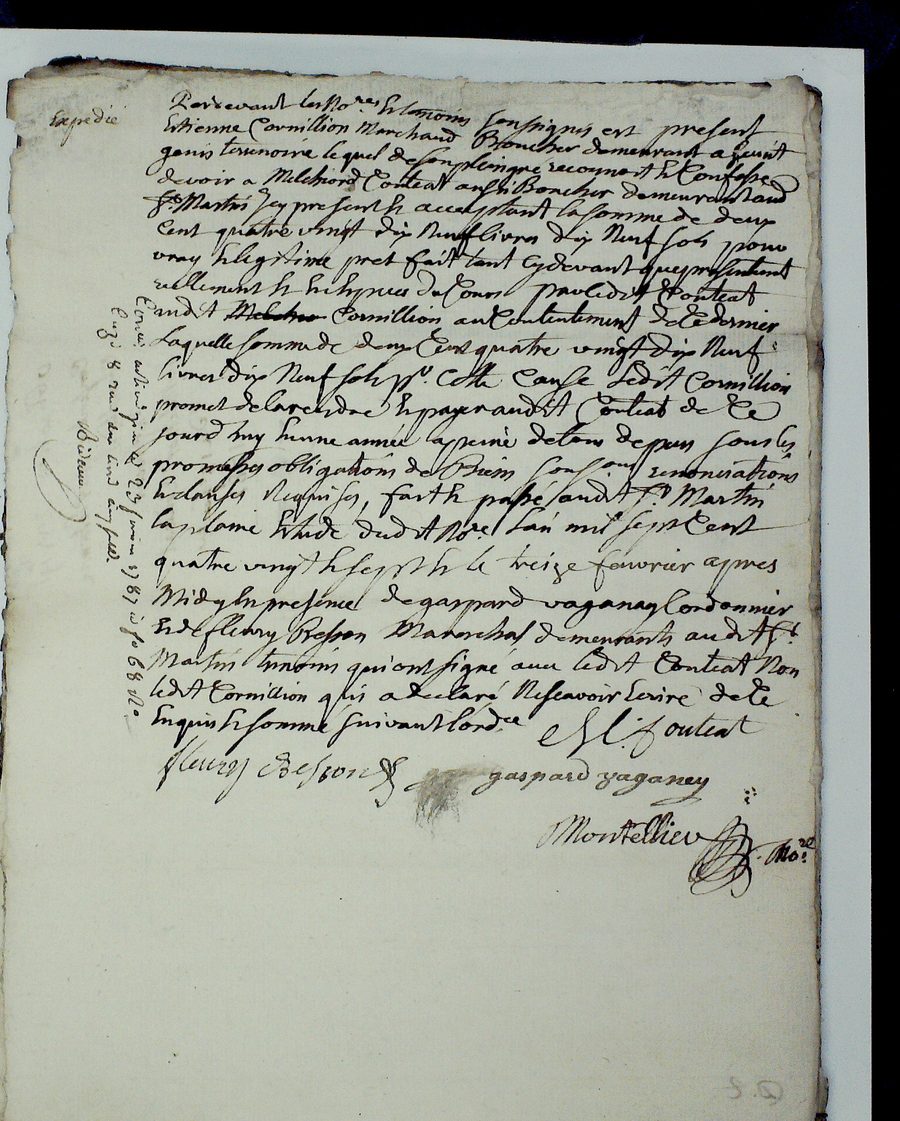 Expedié
Pardevant les No.res & temoins soussignés est present
Estienne Cornillion Marchand Boucher demeurant a Saint
genis terrenoire lequel de son plein gré reconnoit & Confesse
devoir a Melchiord Couteat aussi Boucher demeurant aud
St. Martin Icy present & acceptant la somme de deux
Cent quatre vingt dix Neuf livres dix Neuf sols pour
vray & legitime pret fait tant cy devant que presentement
reellement & en Especes du Cours par ledit Couteat
audit Cornillion au Contentement de Ce dernier
Laquelle somme de deux Cent quatre vingt dix Neuf
livres dix Neuf sols pr. Cette Cause ledit Cornillion
promet de la rendre & payer audit Couteat de Ce
jourd huy en une année a peine de tous depens sous les
promesses obligations de Biens soumons renonciations
& clauses Requises, fait & passé audit St Martin
la plaine Etude dudit No.re L'an mil sept Cent
quatre vingt & sept & le treize février apres
Midy En presence de gaspard vaganay Cordonnier
& de fleury Besson Marechal demeurants audit St.
Martin temoins qui ont signé avec ledit Couteat Non
ledit Cornillion qui a declaré Ne scavoir Ecrire de Ce
Enquis & sommé suivant l'ord.ce
M. Couteat
fleury Besson
gaspard vaganey
Montellier No.re
1787